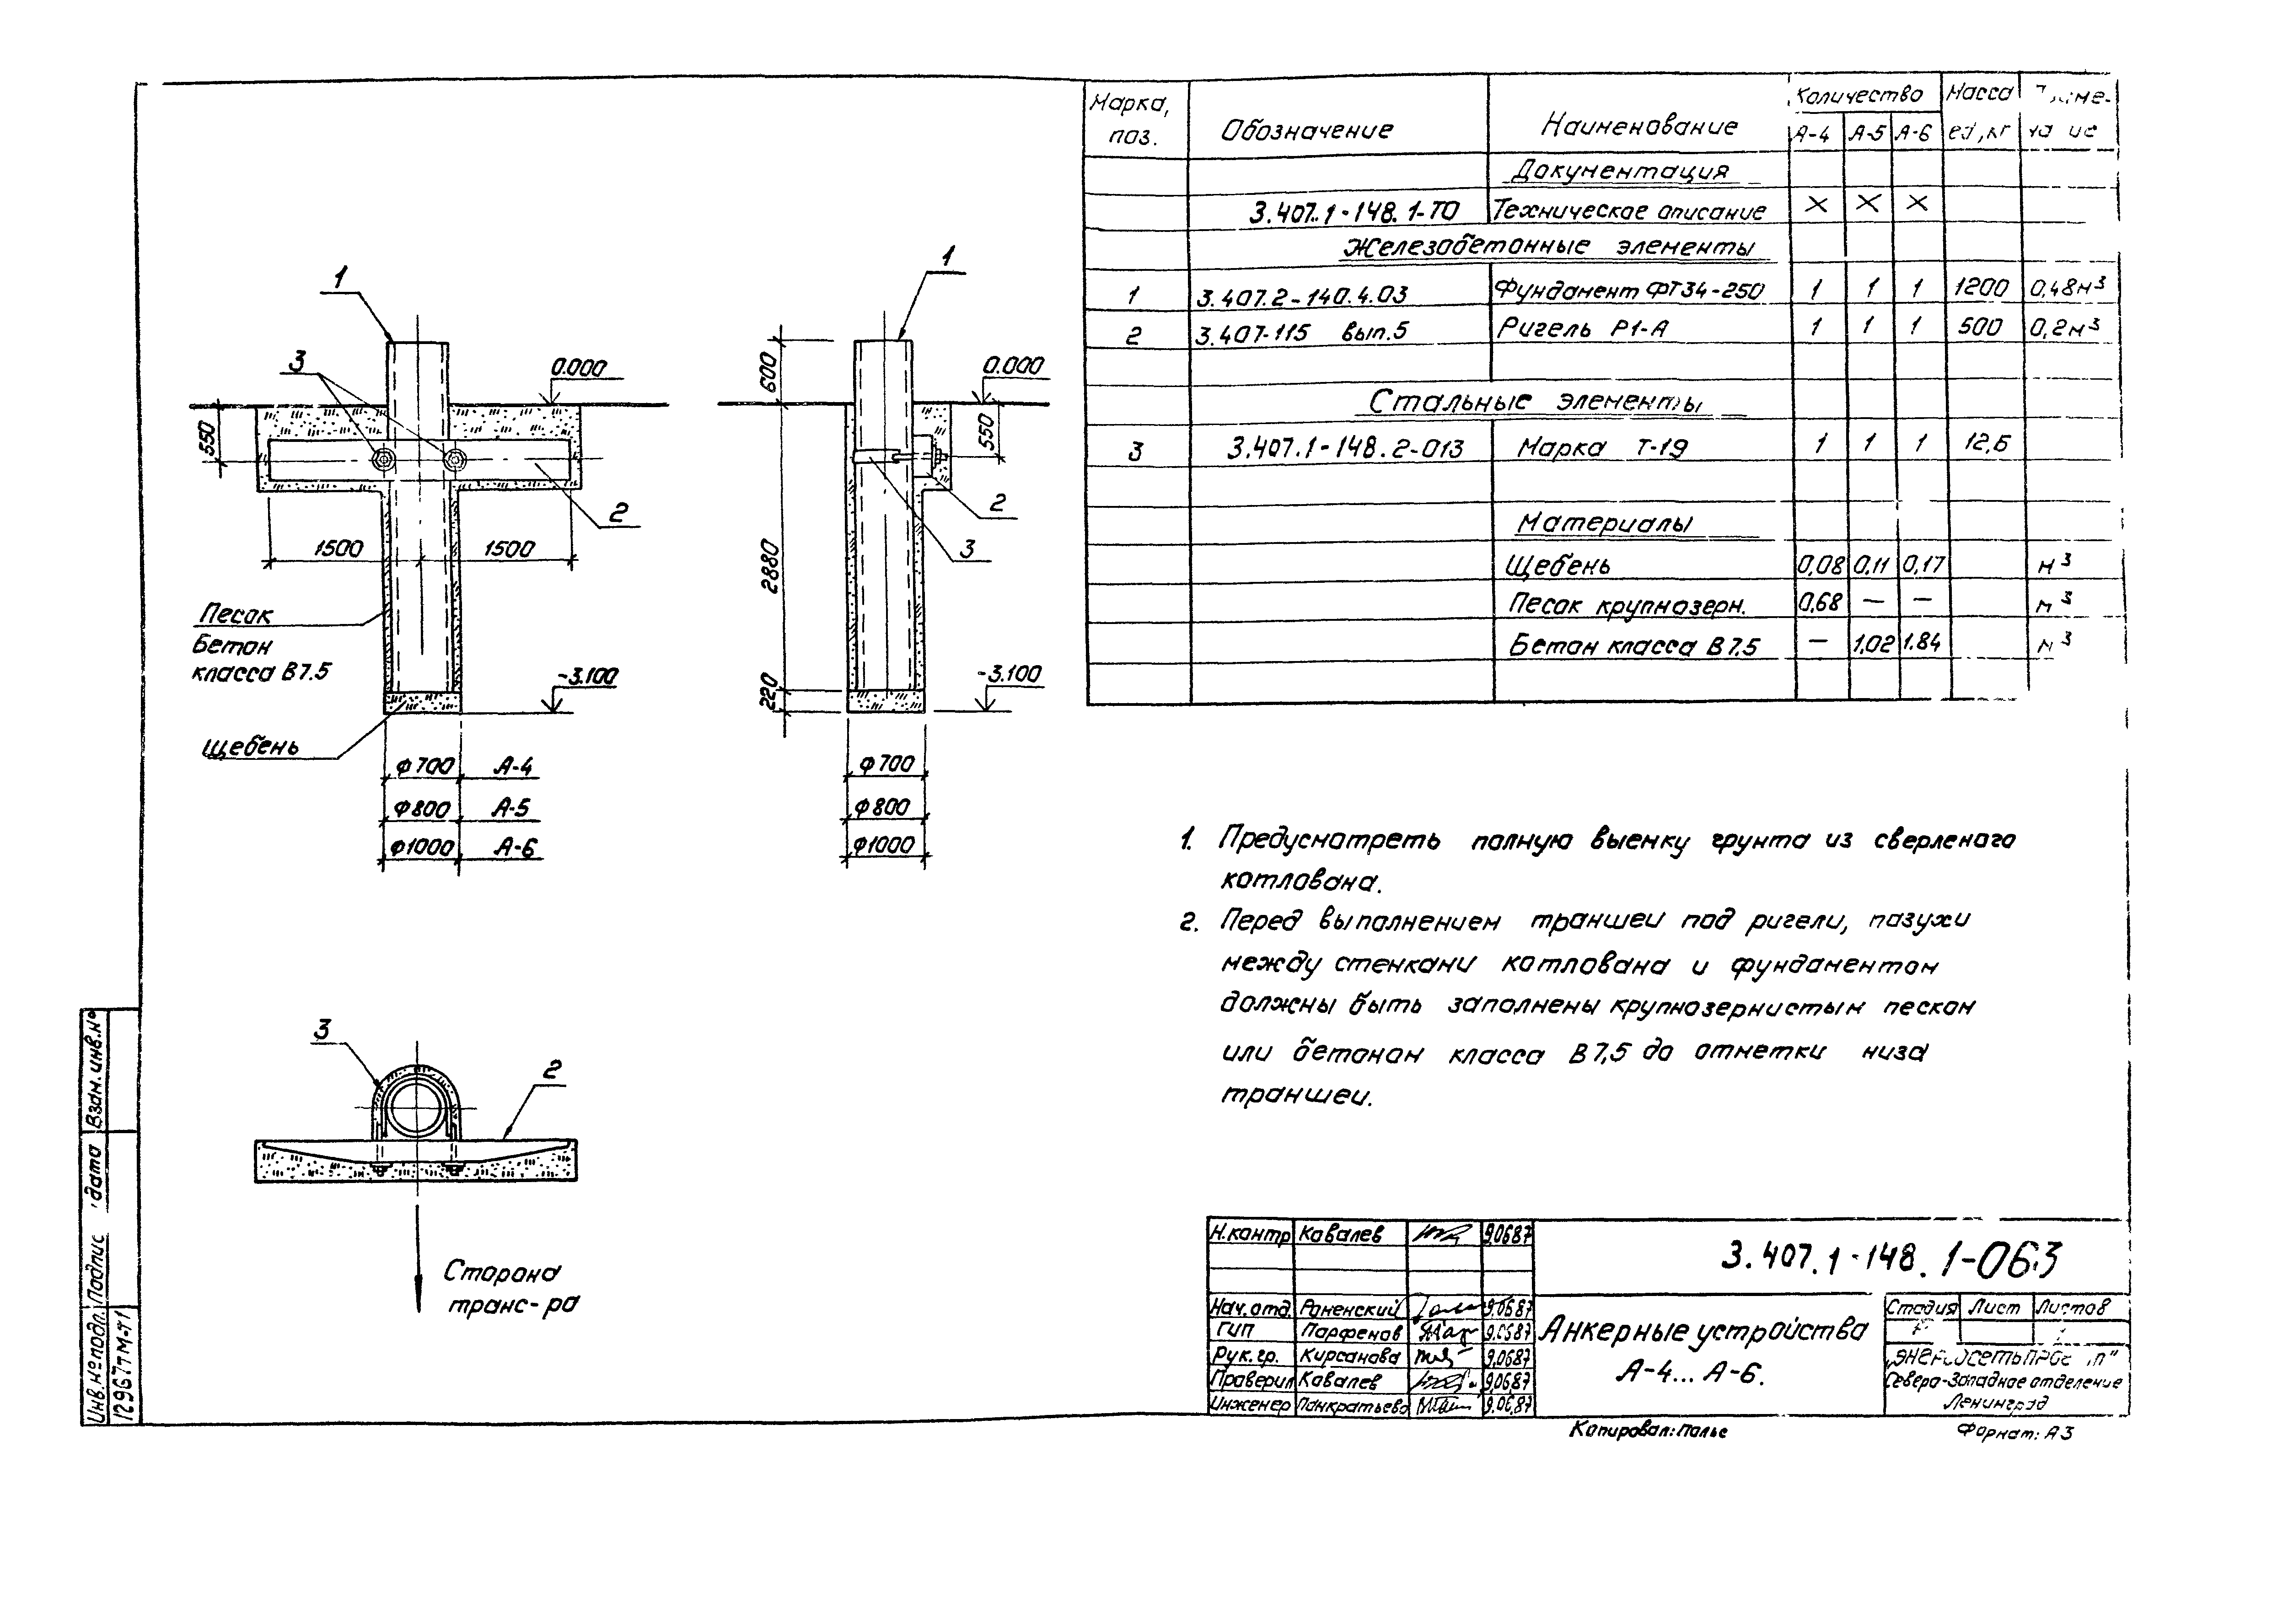 1
3
0.000
550
2
1500 1500
Песок
Бетон
класса В7.5
-3.100
Щебень
ф700 А-4
ф800 А-5
ф1000 А-6
1
600
0.000
550
2
2880
3
220
-3.100
ф700
ф800
ф1000
3
2
Сторона
транс-ра
Марка, поз. Обозначение Наименование Количество Масса ед,кг
А-4 А-5 А-6
Документация
3.407.1-148.1-ТО Техническое описание × × ×
Железобетонные элементы
1 3.407.2-140.4.03 Фундамент ФТ34-250 1 1 1 1200 0,48м³
2 3.407-115 вып.5 Ригель Р1-А 1 1 1 500 0,2м³
Стальные элементы
3 3.407.1-148.2-013 Марка Т-19 1 1 1 12,6
Материалы
Щебень 0,08 0,11 0,17 м³
Песок крупнозерн. 0,68 — — м³
Бетон класса В7,5 — 1,02 1.84 м³
1. Предусмотреть полную выемку грунта из сверленого
котлована.
2. Перед выполнением траншеи под ригели, пазухи
между стенками котлована и фундаментом
должны быть заполнены крупнозернистым песком
или бетоном класса В7,5 до отметки низа
траншеи.
Н.контр Ковалев 9.06.87
3.407.1-148.1-063
Нач.отд. Роменский 9.06.87
ГИП Парфенов 9.06.87
Рук.гр. Кирсанова 9.06.87
Проверил Ковалев 9.06.87
Инженер Панкратьева 9.06.87
Анкерные устройства
А-4...А-6.
Стадия Лист Листов
Северо-Западное отделение
Ленинград
Копировал: Полье
Формат: А3
Взам.инв.№
дата
Инв.№подл.
12967тм-т1